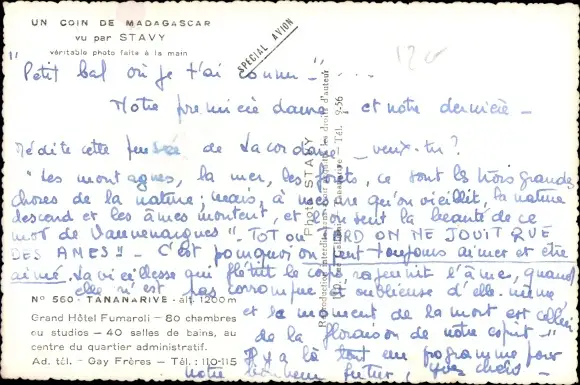 UN COIN DE MADAGASCAR
vu par STAVY
véritable photo faite à la main
SPECIAL AVION
12
"Petit bal où je t'ai connu -" . . . .
Notre première danse, et notre dernière -
Médite cette pensée de Lacordaire - veux-tu ?
"Les montagnes, la mer, les forêts, ce sont les trois grandes
choses de la nature; mais, à mesure qu'on vieillit, la nature
descend et les âmes montent, et l'on sent la beauté de ce
mot de Vauvenargues "TOT ou TARD ON NE JOUIT QUE
DES AMES" - C'est pourquoi on peut toujours aimer et être
aimé. La vieillesse qui flétrit le corps rajeunit l'âme, quand
elle n'est pas corrompue et oublieuse d'elle-même,
et le moment de la mort est celui
de la floraison de notre esprit -"
Il y a là tout un programme pour
notre bonheur futur, chéris -
Nº 560 - TANANARIVE - alt. 1200 m
Grand Hôtel Fumaroli - 80 chambres
ou studios - 40 salles de bains, au
centre du quartier administratif.
Ad. tél. - Gay Frères - Tél. : 110-115
Photo STAVY
Reproduction interdite droits d'auteur
Tananarive - Tél. 9-56